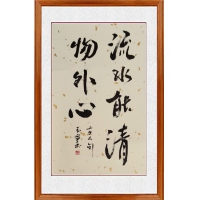 流水能清
物外心